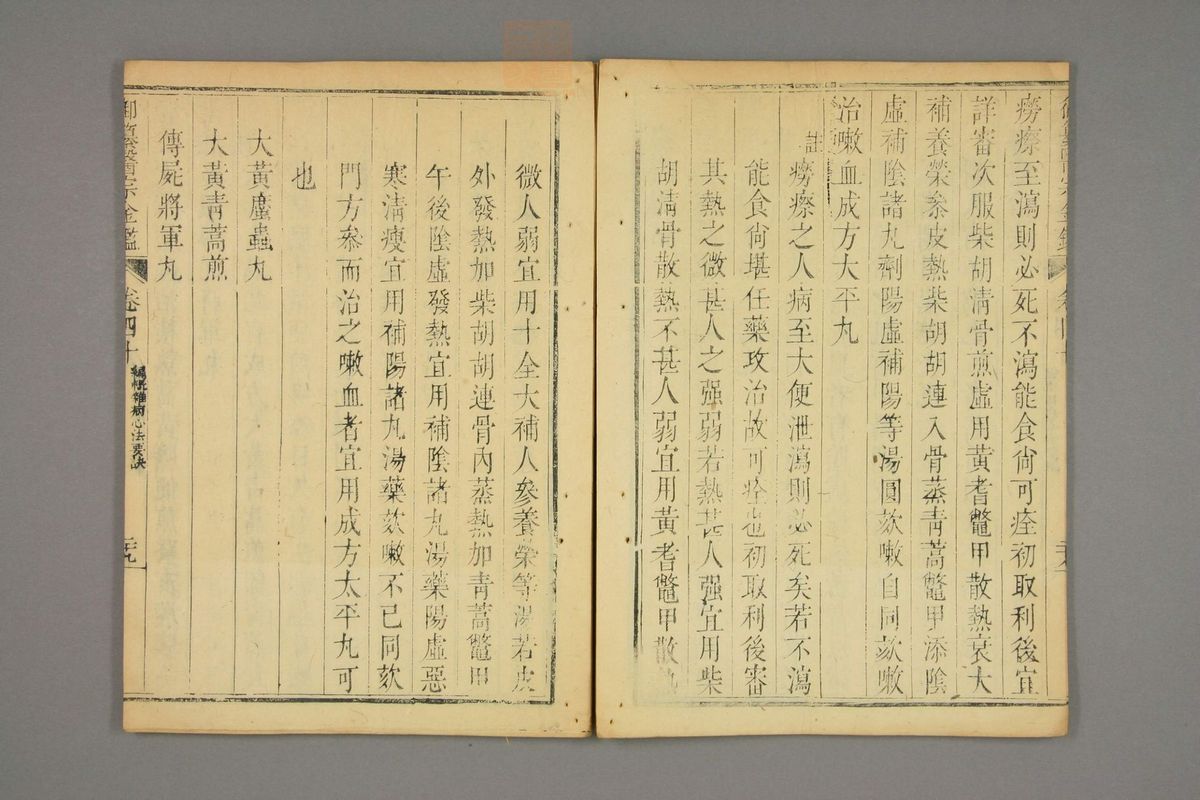 癆瘵至瀉則必死不瀉能食尚可痊初取利後宜
詳審次服柴胡淸骨煎虛用黃耆鼈甲散熱衰大
補養榮㕘皮熱柴胡胡連入骨蒸靑蒿鼈甲添陰
虛補陰諸丸劑陽虛補陽等湯圓欬嗽自同欬嗽
治嗽血成方大平丸
註 癆瘵之人病至大便泄瀉則必死矣若不瀉
能食尚堪任藥攻治故可痊也初取利後審
其熱之微甚人之强弱若熱甚人强宜用柴
胡淸骨散熱不甚人弱宜用黃耆鼈甲散熱
微人弱宜用十全大補人參養榮等湯若皮
外發熱加柴胡胡連骨內蒸熱加靑蒿鼈甲
午後陰虛發熱宜用補陰諸丸湯藥陽虛惡
寒淸瘦宜用補陽諸丸湯藥欬嗽不已同欬
門方㕘而治之嗽血者宜用成方太平丸可
也
大黃䗪蟲丸
大黃靑蒿煎
傳屍將軍丸
御纂醫宗金鑑 卷四十 編輯雜病心法要訣